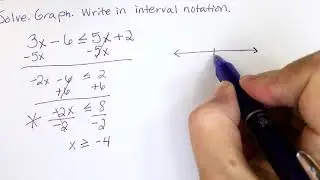 Solve. Graph. Write in interval notation.
3x - 6 ≤ 5x + 2
-5x -5x
-2x - 6 ≤ 2
+6 +6
* -2x ≤ 8
-2 -2
x ≥ -4